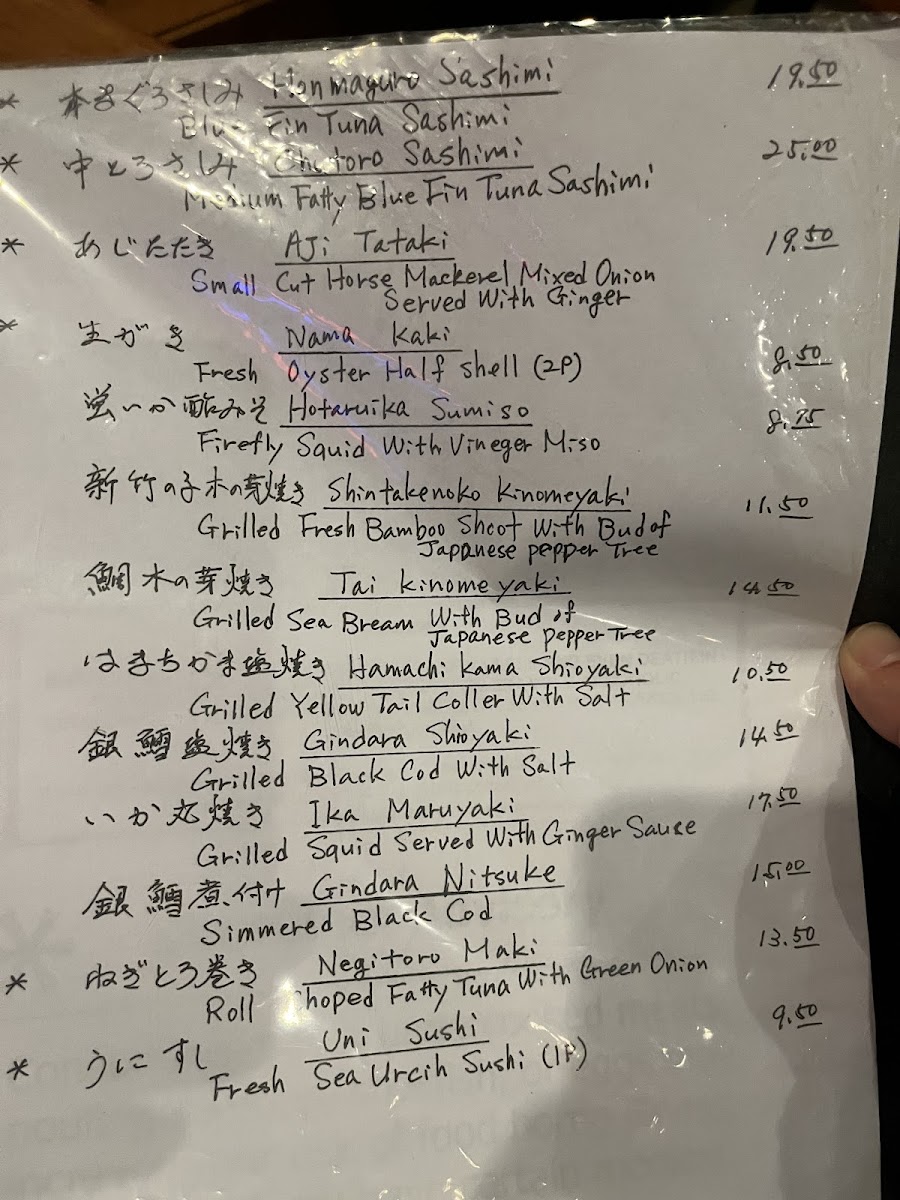 * 本まぐろさしみ Honmaguro Sashimi 19.50
Blue Fin Tuna Sashimi
* 中とろさしみ Chutoro Sashimi 25.00
Medium Fatty Blue Fin Tuna Sashimi
* あじたたき AJi Tataki 19.50
Small Cut Horse Mackerel Mixed Onion
Served With Ginger
* 生がき Nama Kaki 8.50
Fresh Oyster Half shell (2P)
蛍いか酢みそ Hotaruika Sumiso 8.75
Firefly Squid With Vineger Miso
新竹の子木の芽焼き Shintakenoko Kinomeyaki 11.50
Grilled Fresh Bamboo Shoot With Bud of
Japanese pepper Tree
鯛木の芽焼き Tai Kinomeyaki 14.50
Grilled Sea Bream With Bud of
Japanese pepper Tree
はまちかま塩焼き Hamachi Kama Shioyaki 10.50
Grilled Yellow Tail Coller With Salt
銀鱈塩焼き Gindara Shioyaki 14.50
Grilled Black Cod With Salt
いか丸焼き Ika Maruyaki 17.50
Grilled Squid Served With Ginger Sause
銀鱈煮付け Gindara Nitsuke 15.00
Simmered Black Cod
* ねぎとろ巻き Negitoro Maki 13.50
Roll Choped Fatty Tuna With Green Onion
* うにすし Uni Sushi 9.50
Fresh Sea Urcih Sushi (1P)